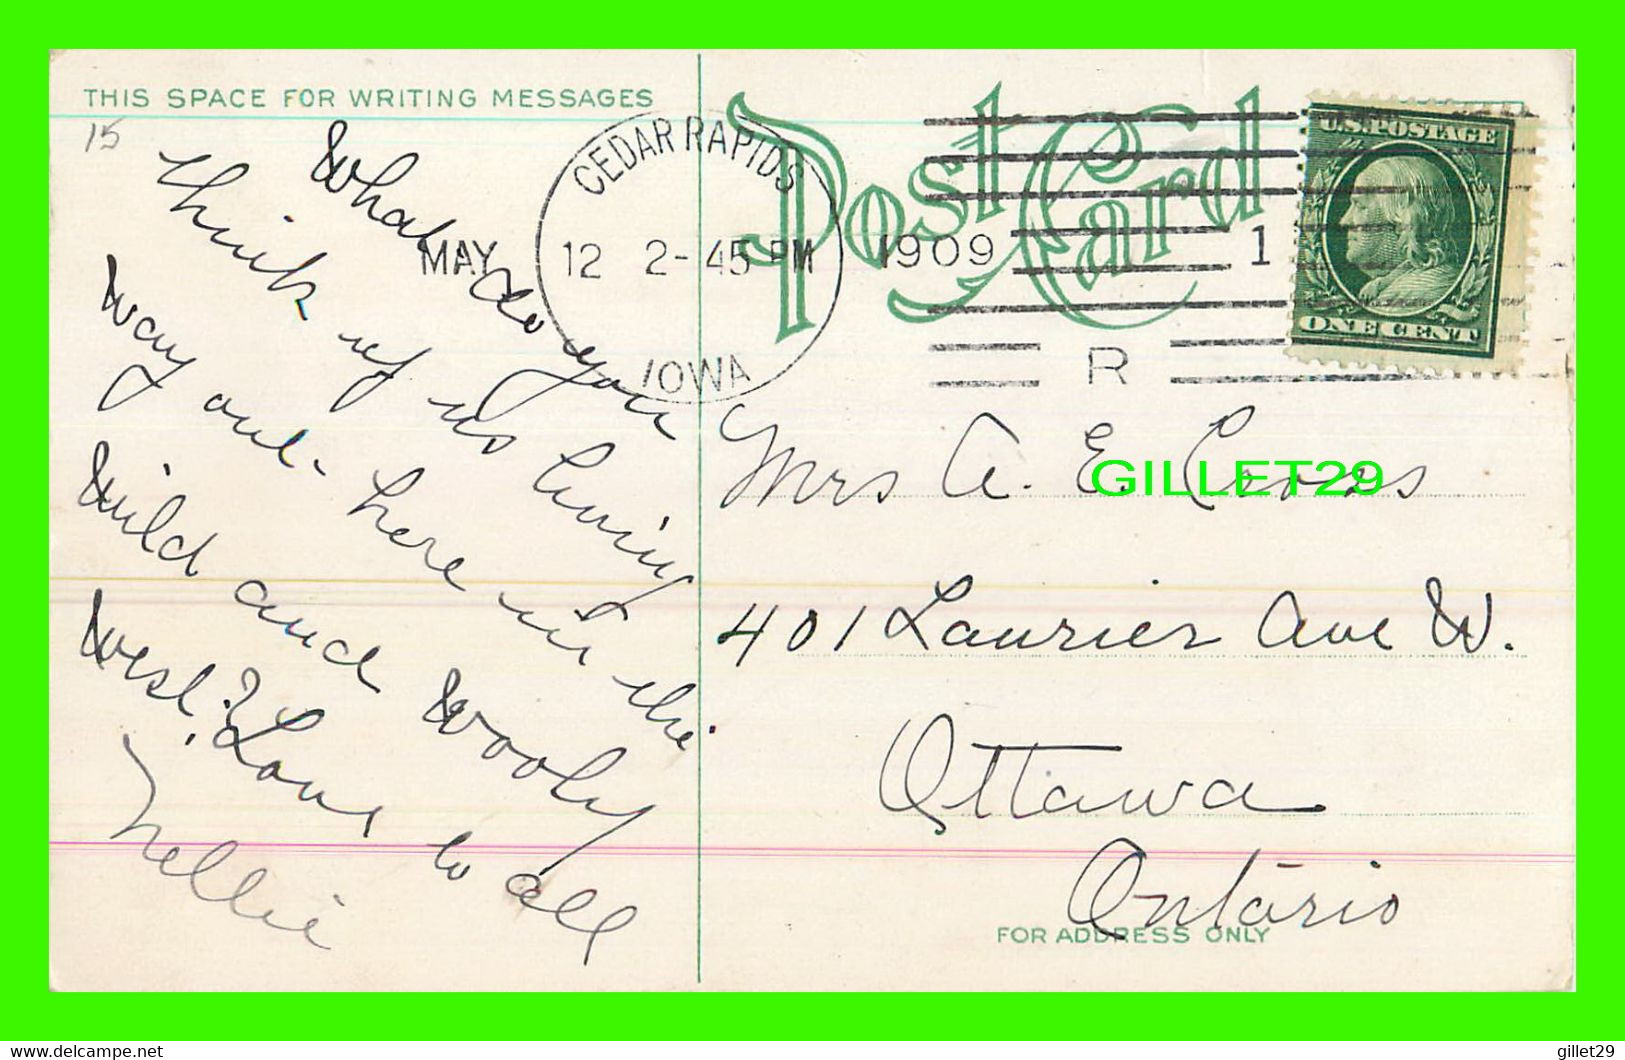 THIS SPACE FOR WRITING MESSAGES
15
What do you
think of us living
way out here in the
wild and wooly
west? Love to all
Nellie
CEDAR RAPIDS
MAY 12 2-45 PM 1909 1
IOWA
R
Post Card
U.S. POSTAGE
ONE CENT
Mrs A. E.
GILLET29
401 Laurier Ave W.
Ottawa
Ontario
FOR ADDRESS ONLY
gillet29